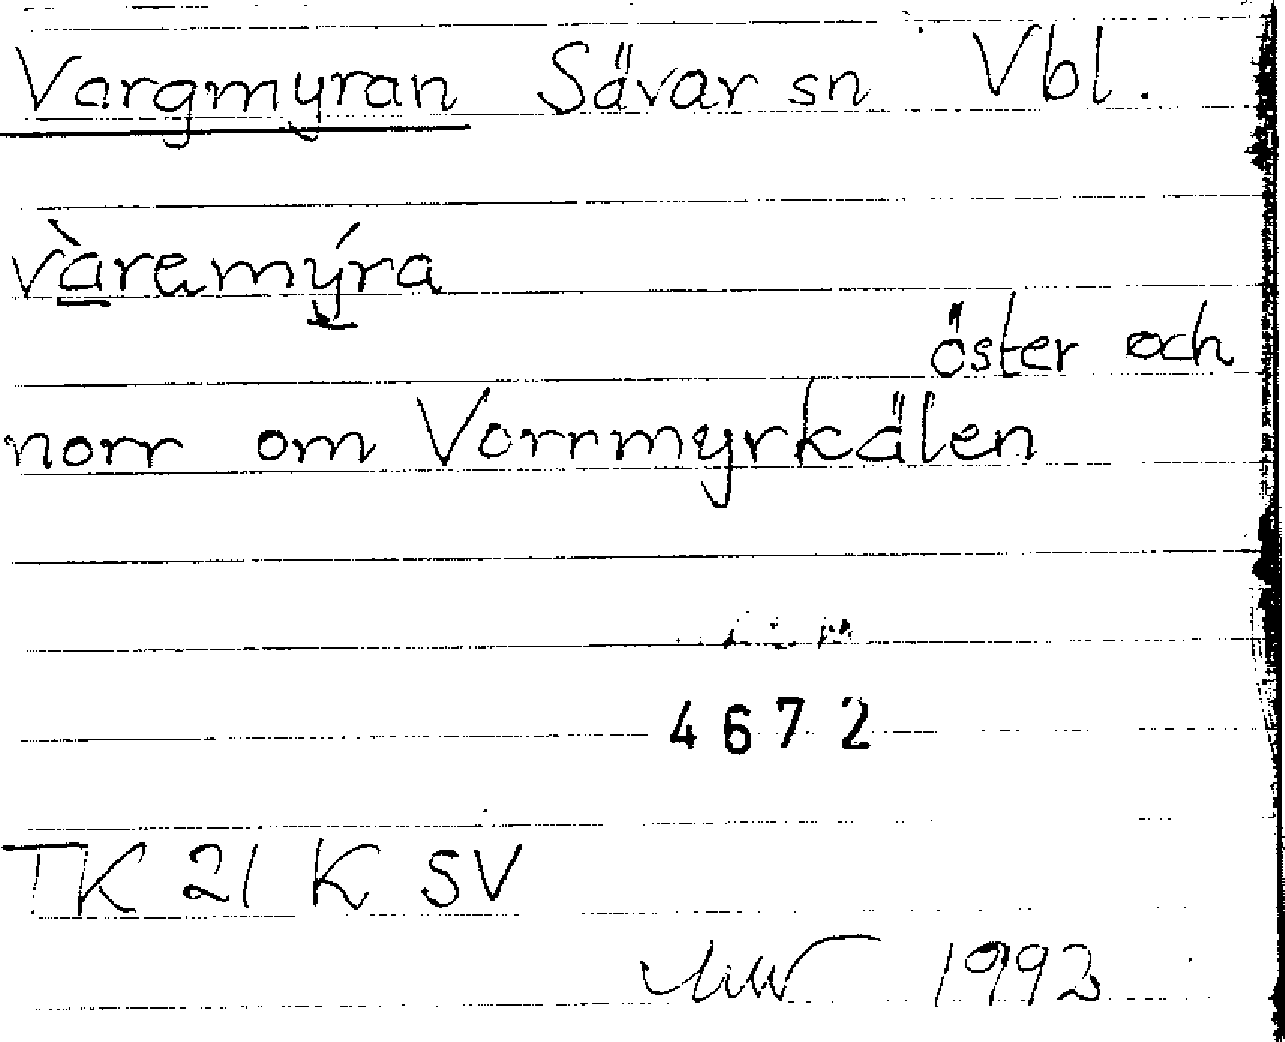 Vargmyran Sävar sn Vbl.
vàremýra
öster och
norr om Vorrmyrkälen
4672
TK 21 K SV
1992